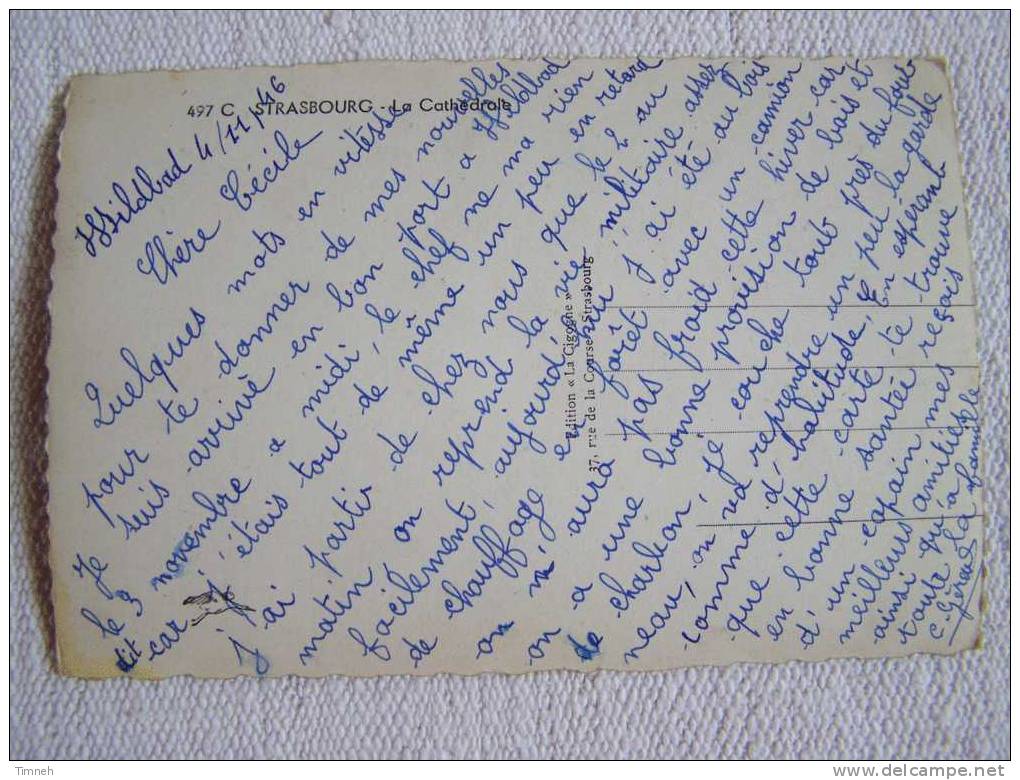 497 C STRASBOURG - La Cathédrale
Wildbad 4/11/46
Chère Cécile
Quelques mots en vitesse
pour te donner de mes nouvelles
Je suis arrivé en bon port a Wildbad
le 3 novembre a midi, le chef ne ma rien
dit car j'étais tout de même un peu en retard
j'ai parti de chez nous que le 2 au
matin on reprend la vie militaire assez
facilement, aujourd'hui j'ai été du bois
de chauffage en forêt avec un camion
on aura pas froid cette hiver car
on a une bonne provision de bois et
de charbon, je couche tout près du four
neau, on va reprendre un peu la garde
comme d'habitude, En espérant
que cette carte te trouve
en bonne santé reçois
d'un copain mes
meilleurs amitiés
ainsi qu'a
toute la famille
C. Gérard
Edition « La Cigogne »
37, rue de la Course - Strasbourg
Timneh
www.delcampe.net